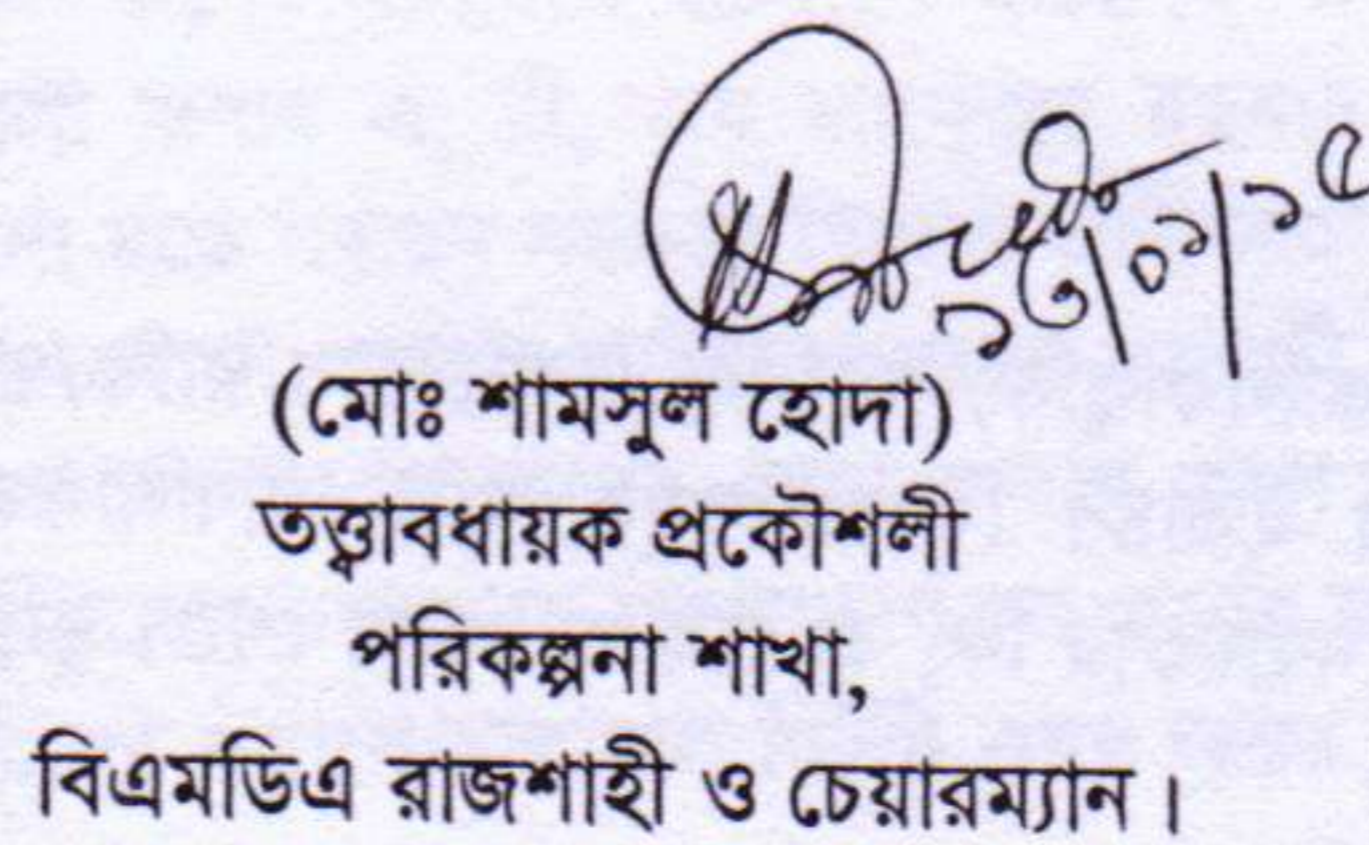 ১৩/০১/১৫
(মোঃ শামসুল হোদা)
তত্ত্বাবধায়ক প্রকৌশলী
পরিকল্পনা শাখা,
বিএমডিএ রাজশাহী ও চেয়ারম্যান।